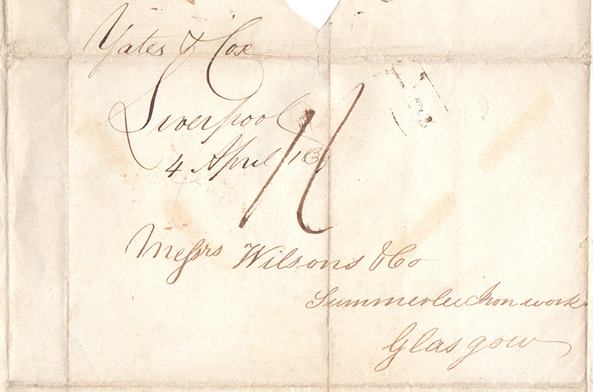 Yates & Cox
Liverpool
4 April
Messrs Wilsons & Co
Summerlee Iron work
Glasgow